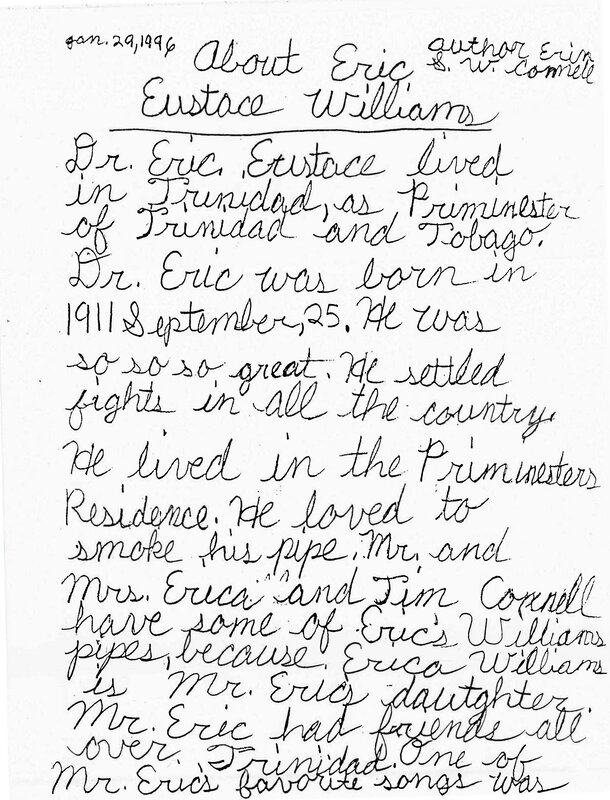 Jan. 29, 1996
author Erin
S. W. Connell
About Eric
Eustace Williams
Dr. Eric. Eustace lived
in Trinidad, as Priminester
of Trinidad and Tobago.
Dr. Eric was born in
1911 September, 25. He was
so so so great. He settled
fights in all the country.
He lived in the Priminesters
Residence. He loved to
smoke his pipe. Mr. and
Mrs. Erica and Tim Connell
have some of Eric's Williams
pipes, because Erica Williams
is Mr. Eric's dautghter.
Mr. Eric had friends all
over Trinidad. One of
Mr. Eric's favorite songs was